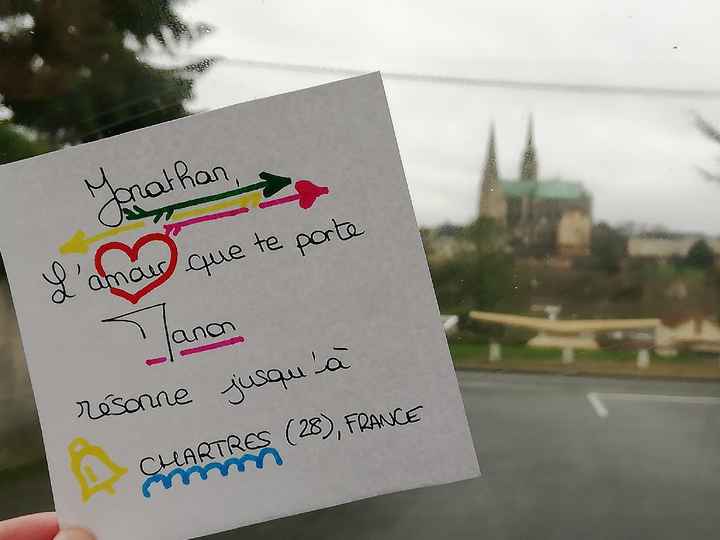 Jonathan,
L'amour que te porte
Manon
résonne jusqu'à
CHARTRES (28), FRANCE